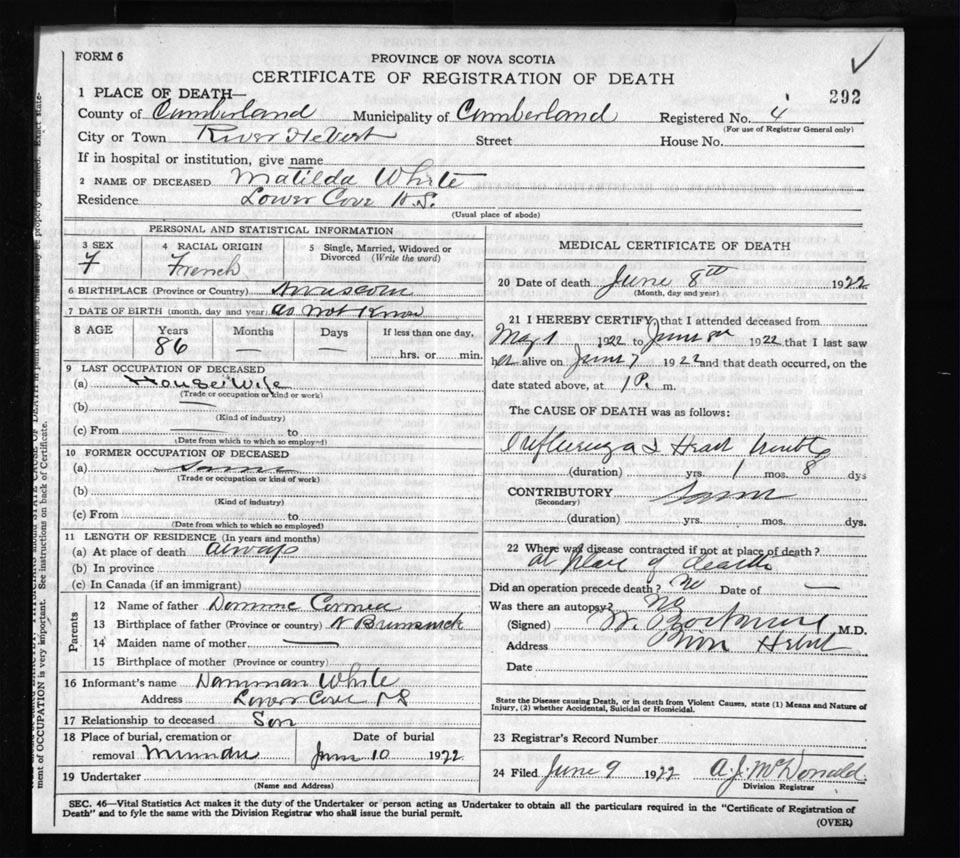 FORM 6
PROVINCE OF NOVA SCOTIA
CERTIFICATE OF REGISTRATION OF DEATH
292
1 PLACE OF DEATH—
County of Cumberland Municipality of Cumberland Registered No. 4
(For use of Registrar General only)
City or Town River Hebert Street House No.
If in hospital or institution, give name
2 NAME OF DECEASED Matilda White
Residence Lower Cove N.S.
(Usual place of abode)
PERSONAL AND STATISTICAL INFORMATION
3 SEX 4 RACIAL ORIGIN 5 Single, Married, Widowed or Divorced (Write the word)
F French
6 BIRTHPLACE (Province or Country)
7 DATE OF BIRTH (month, day and year) do not know
8 AGE Years Months Days If less than one day,
86 — — hrs. or min.
9 LAST OCCUPATION OF DECEASED
(a) Housewife
(Trade or occupation or kind or work)
(b) —
(Kind of industry)
(c) From — to
(Date from which to which so employed)
10 FORMER OCCUPATION OF DECEASED
(a) Same
(Trade or occupation or kind of work)
(b)
(Kind of industry)
(c) From to
(Date from which to which so employed)
11 LENGTH OF RESIDENCE (In years and months)
(a) At place of death always
(b) In province
(c) In Canada (if an immigrant)
Parents
12 Name of father
13 Birthplace of father (Province or country) N Brunswick
14 Maiden name of mother —
15 Birthplace of mother (Province or country)
16 Informant's name White
Address Lower Cove NS
17 Relationship to deceased Son
18 Place of burial, cremation or removal Minudie Date of burial June 10 1922
19 Undertaker
(Name and Address)
MEDICAL CERTIFICATE OF DEATH
20 Date of death June 8th 1922
(Month, day and year)
21 I HEREBY CERTIFY that I attended deceased from
May 1 1922 to June 8th 1922 that I last saw
her alive on June 7 1922 and that death occurred, on the
date stated above, at 1 P. m.
The CAUSE OF DEATH was as follows:
Influenza & Heart trouble
(duration) yrs. 1 mos. 8 dys
CONTRIBUTORY Same
(Secondary)
(duration) yrs. mos. dys.
22 Where was disease contracted if not at place of death?
at place of death
Did an operation precede death? No Date of —
Was there an autopsy? No
(Signed) W. M.D.
Address River Hebert
Date
State the Disease causing Death, or in death from Violent Causes, state (1) Means and Nature of
Injury, (2) whether Accidental, Suicidal or Homicidal.
23 Registrar's Record Number
24 Filed June 9 1922 A. J. McDonald
Division Registrar
SEC. 46—Vital Statistics Act makes it the duty of the Undertaker or person acting as Undertaker to obtain all the particulars required in the "Certificate of Registration of
Death" and to fyle the same with the Division Registrar who shall issue the burial permit.
(OVER)
ment of OCCUPATION is very important. See instructions on back of Certificate.